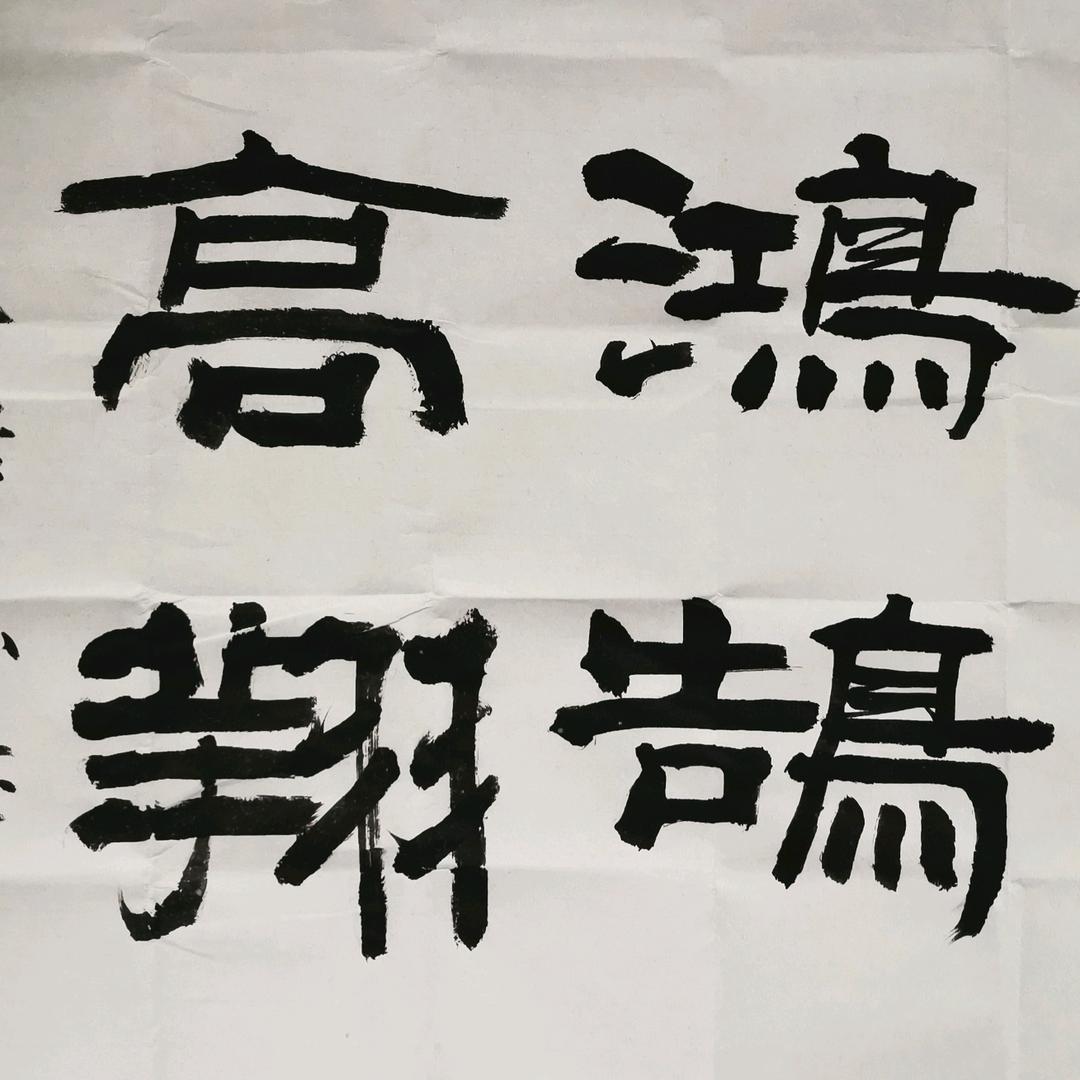 鴻鵠
高翔